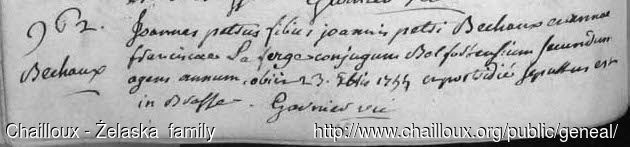 962.
Bechaux
Joannes petrus filius joannis petri Bechaux et annae
franciscae La ferge conjugum Belfortensium secundum
agens annum, obiit 23. 7bris 1744 et postridie sepultus est
in Brasse. Garnier vic
Chailloux - Żelaska family
http://www.chailloux.org/public/geneal/